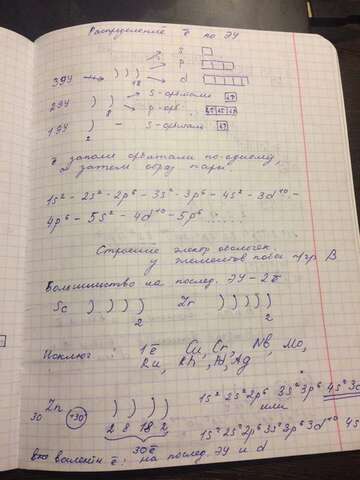 Распределение ē по ЭУ
s
p
3ЭУ ) ) ) 18 d
2ЭУ ) ) 8 s-орбиталь ↑↓
p-орб. ↑↓ ↑↓ ↑↓
1ЭУ ) 2 – s-орбиталь ↑↓
ē заполн орбитали по-одному,
а затем образ пары
1s² – 2s² – 2p⁶ – 3s² – 3p⁶ – 4s² – 3d¹⁰ –
4p⁶ – 5s² – 4d¹⁰ – 5p⁶
Строение электр оболочек
у элементов побоч п/гр В
Большинство на послед. ЭУ – 2ē
Sc ) ) ) ) 2 Zr ) ) ) ) ) 2
Исключ : 1ē Cu, Cr, Nb, Mo,
Ru, Rh, Ag
30 Zn +30 ) ) ) ) 1s² 2s² 2p⁶ 3s² 3p⁶ 4s² 3d
2 8 18 2 или
30ē 1s² 2s² 2p⁶ 3s² 3p⁶ 3d¹⁰ 4s
валентн ē: на послед. ЭУ и d